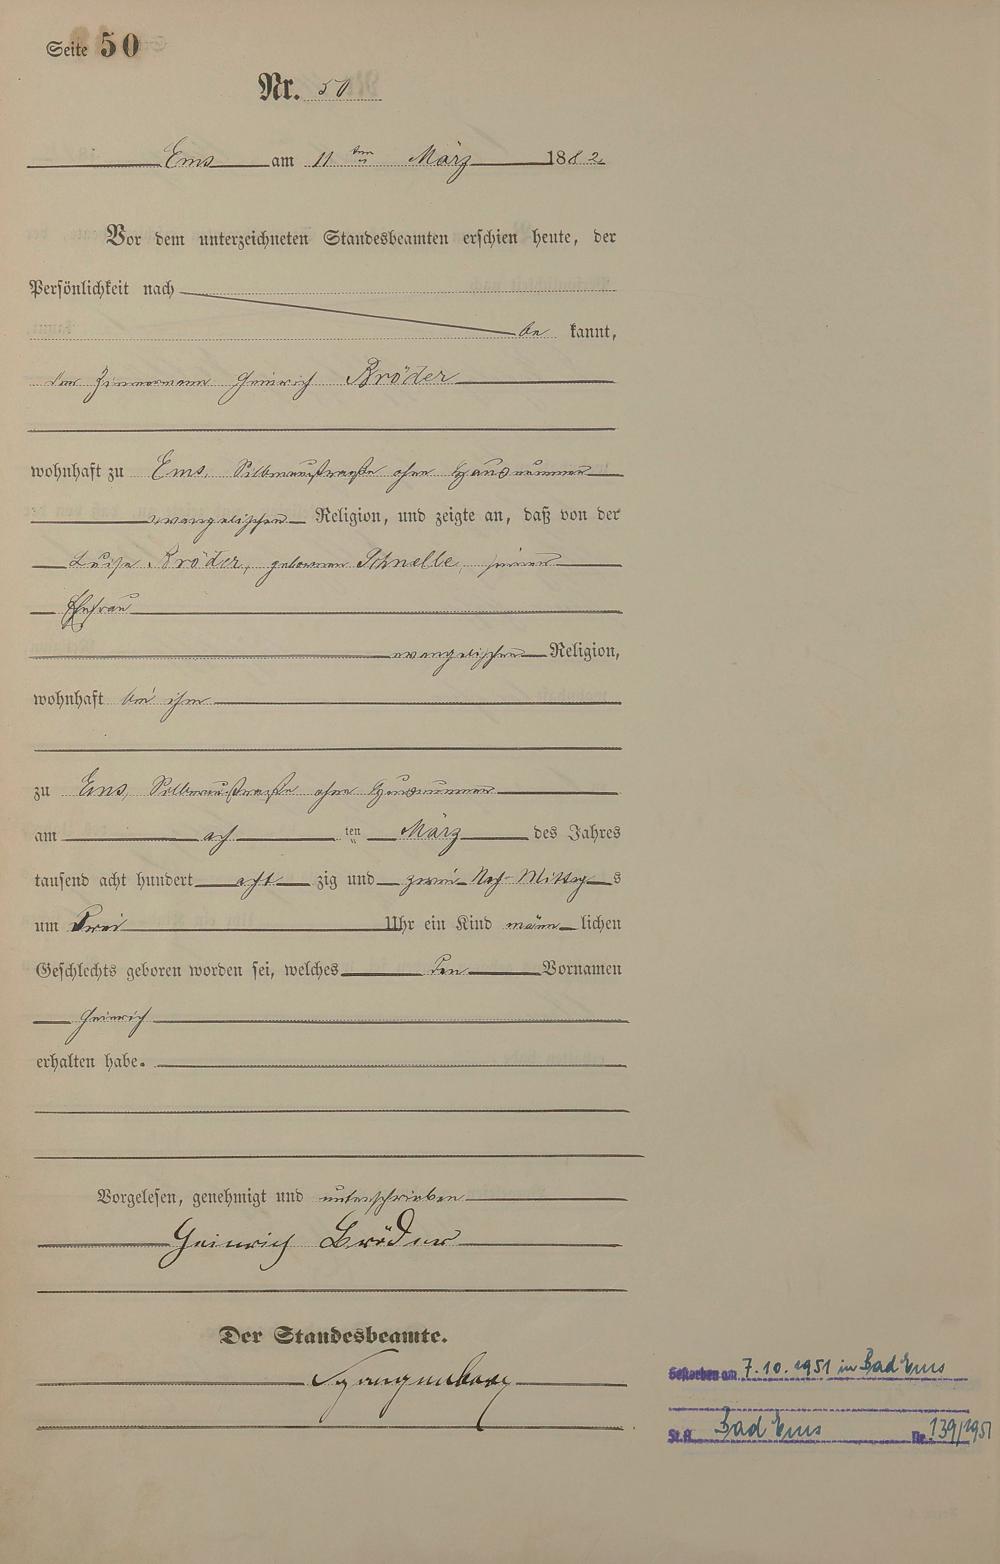 Seite 50
Nr. 50
Ems am 11 ten März 1882
Vor dem unterzeichneten Standesbeamten erschien heute, der
Persönlichkeit nach
be kannt,
der Zimmermann Heinrich Bröder
wohnhaft zu Ems, Silberaustraße ohne Hausnummer
evangelischen Religion, und zeigte an, daß von der
Luise Bröder, geborenen Schnelle, seiner
Ehefrau
evangelischen Religion,
wohnhaft bei ihm
zu Ems, Silberaustraße ohne Hausnummer
am ach ten März des Jahres
tausend acht hundert acht zig und zwei Nach-Mittag s
um drei Uhr ein Kind männ lichen
Geschlechts geboren worden sei, welches den Vornamen
Heinrich
erhalten habe.
Vorgelesen, genehmigt und unterschrieben
Heinrich Bröder
Der Standesbeamte.
Gestorben am 7.10.1951 in Bad Ems
St.A. Bad Ems Nr. 139/1951